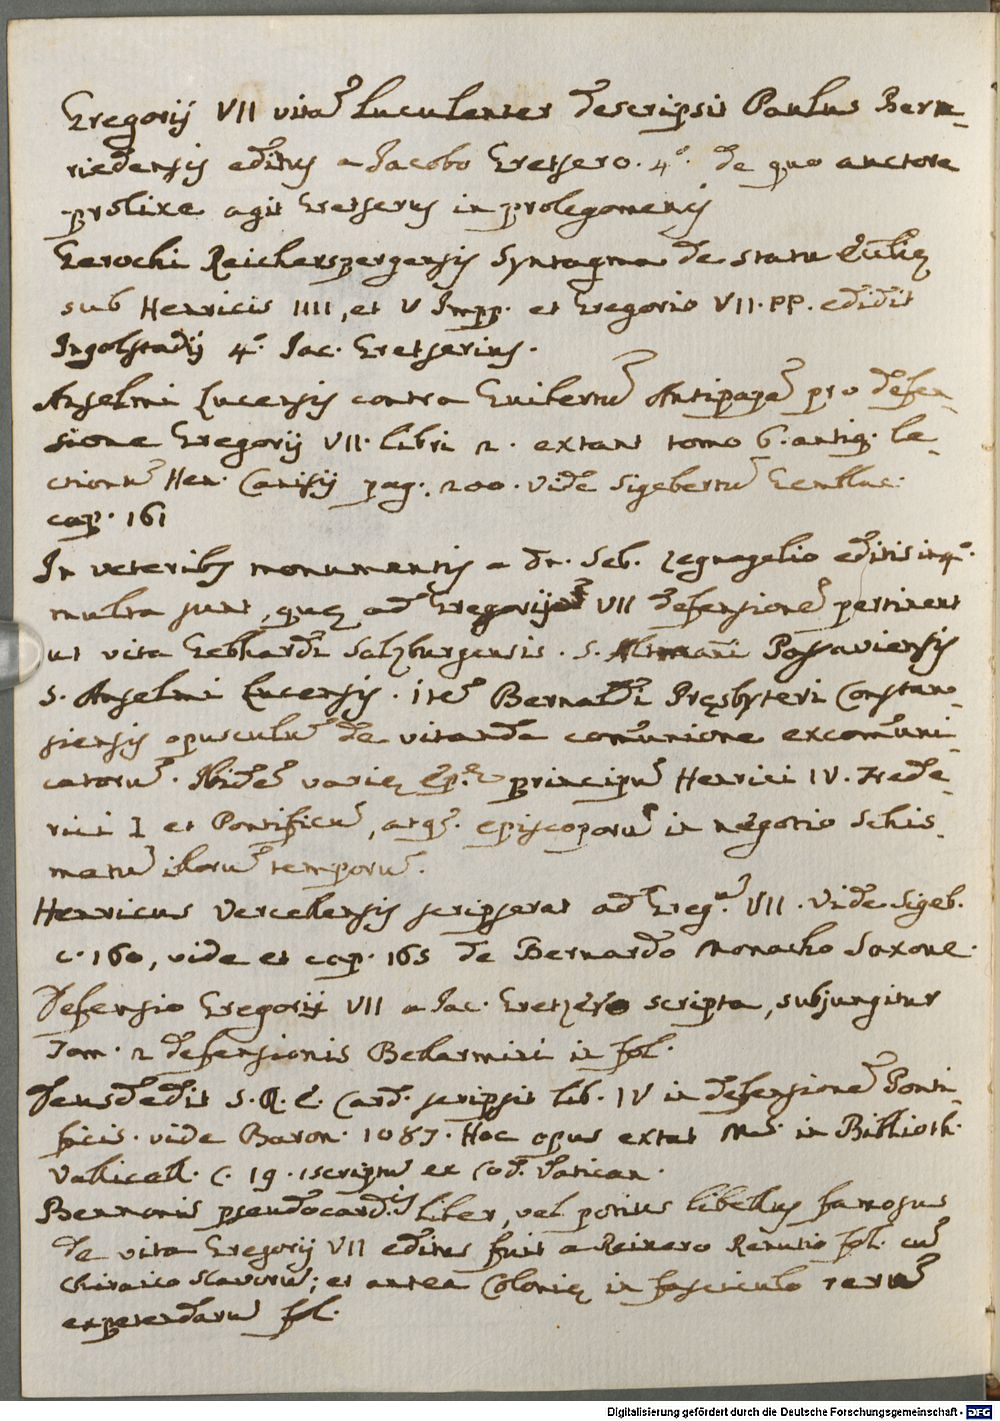 Gregorij VII vitā luculenter descripsit Paulus Bern-
riedensis editus a Jacobo Gretsero. 4°. de quo auctore
prolixe agit Gretserus in prolegomenis
Gerochi Reicherspergensis Syntagma de statu Ecclię
sub Henricis IIII, et V Impp. et Gregorio VII. PP. edidit
Ingolstadij 4°. Jac. Gretserius.
Anselmi Lucensis contra Guibertū Antipapā pro defen-
sione Gregorij VII. libri 2. extant tomo 6. antiq. le-
ctionū Hen. Canisij pag. 200. vide Sigebertū Gemblac.
cap. 161
In veteribus monumentis a Dn. Seb. Tegnagelio editis in 4°.
multa sunt, quę ad Gregorij VII defensionē pertinent
ut vita Gebhardi Salzburgensis. S. Altmāni Passaviensis
S. Anselmi Lucensis. itē Bernaldi Pręsbyteri Constan-
siensis opusculū de vitanda comūnione excomūni-
catorū. Ibidē varię principū Henrici IV. Frede-
rici I et Pontificū, atq. episcoporū in negotio Schis-
matū illorū temporū.
Henricus Vercellensis scripserat ad Greg. VII. Vide Sigeb.
c. 160, vide et cap. 165 de Bernardo Monacho Saxone.
Defensio Gregorij VII a Jac. Gretzero scripta, subjungitur
Tom. 2 defensionis Bellarmini in fol.
Deusdedit S. R. E. Card. scripsit lib. IV in defensionē Ponti-
ficis. vide Baron. 1087. Hoc opus extat Ms. in Biblioth.
Vallicell. C. 19. scriptū ex Cod. Vatican.
Bennonis pseudocard.is liber, vel potius libellus famosus
de vita Gregorij VII editus fuit a Reinero Renutio fol. cū
Slavorū; et antea Colonię in fasciculo rerū
expetendarū fol.
Digitalisierung gefördert durch die Deutsche Forschungsgemeinschaft - DFG